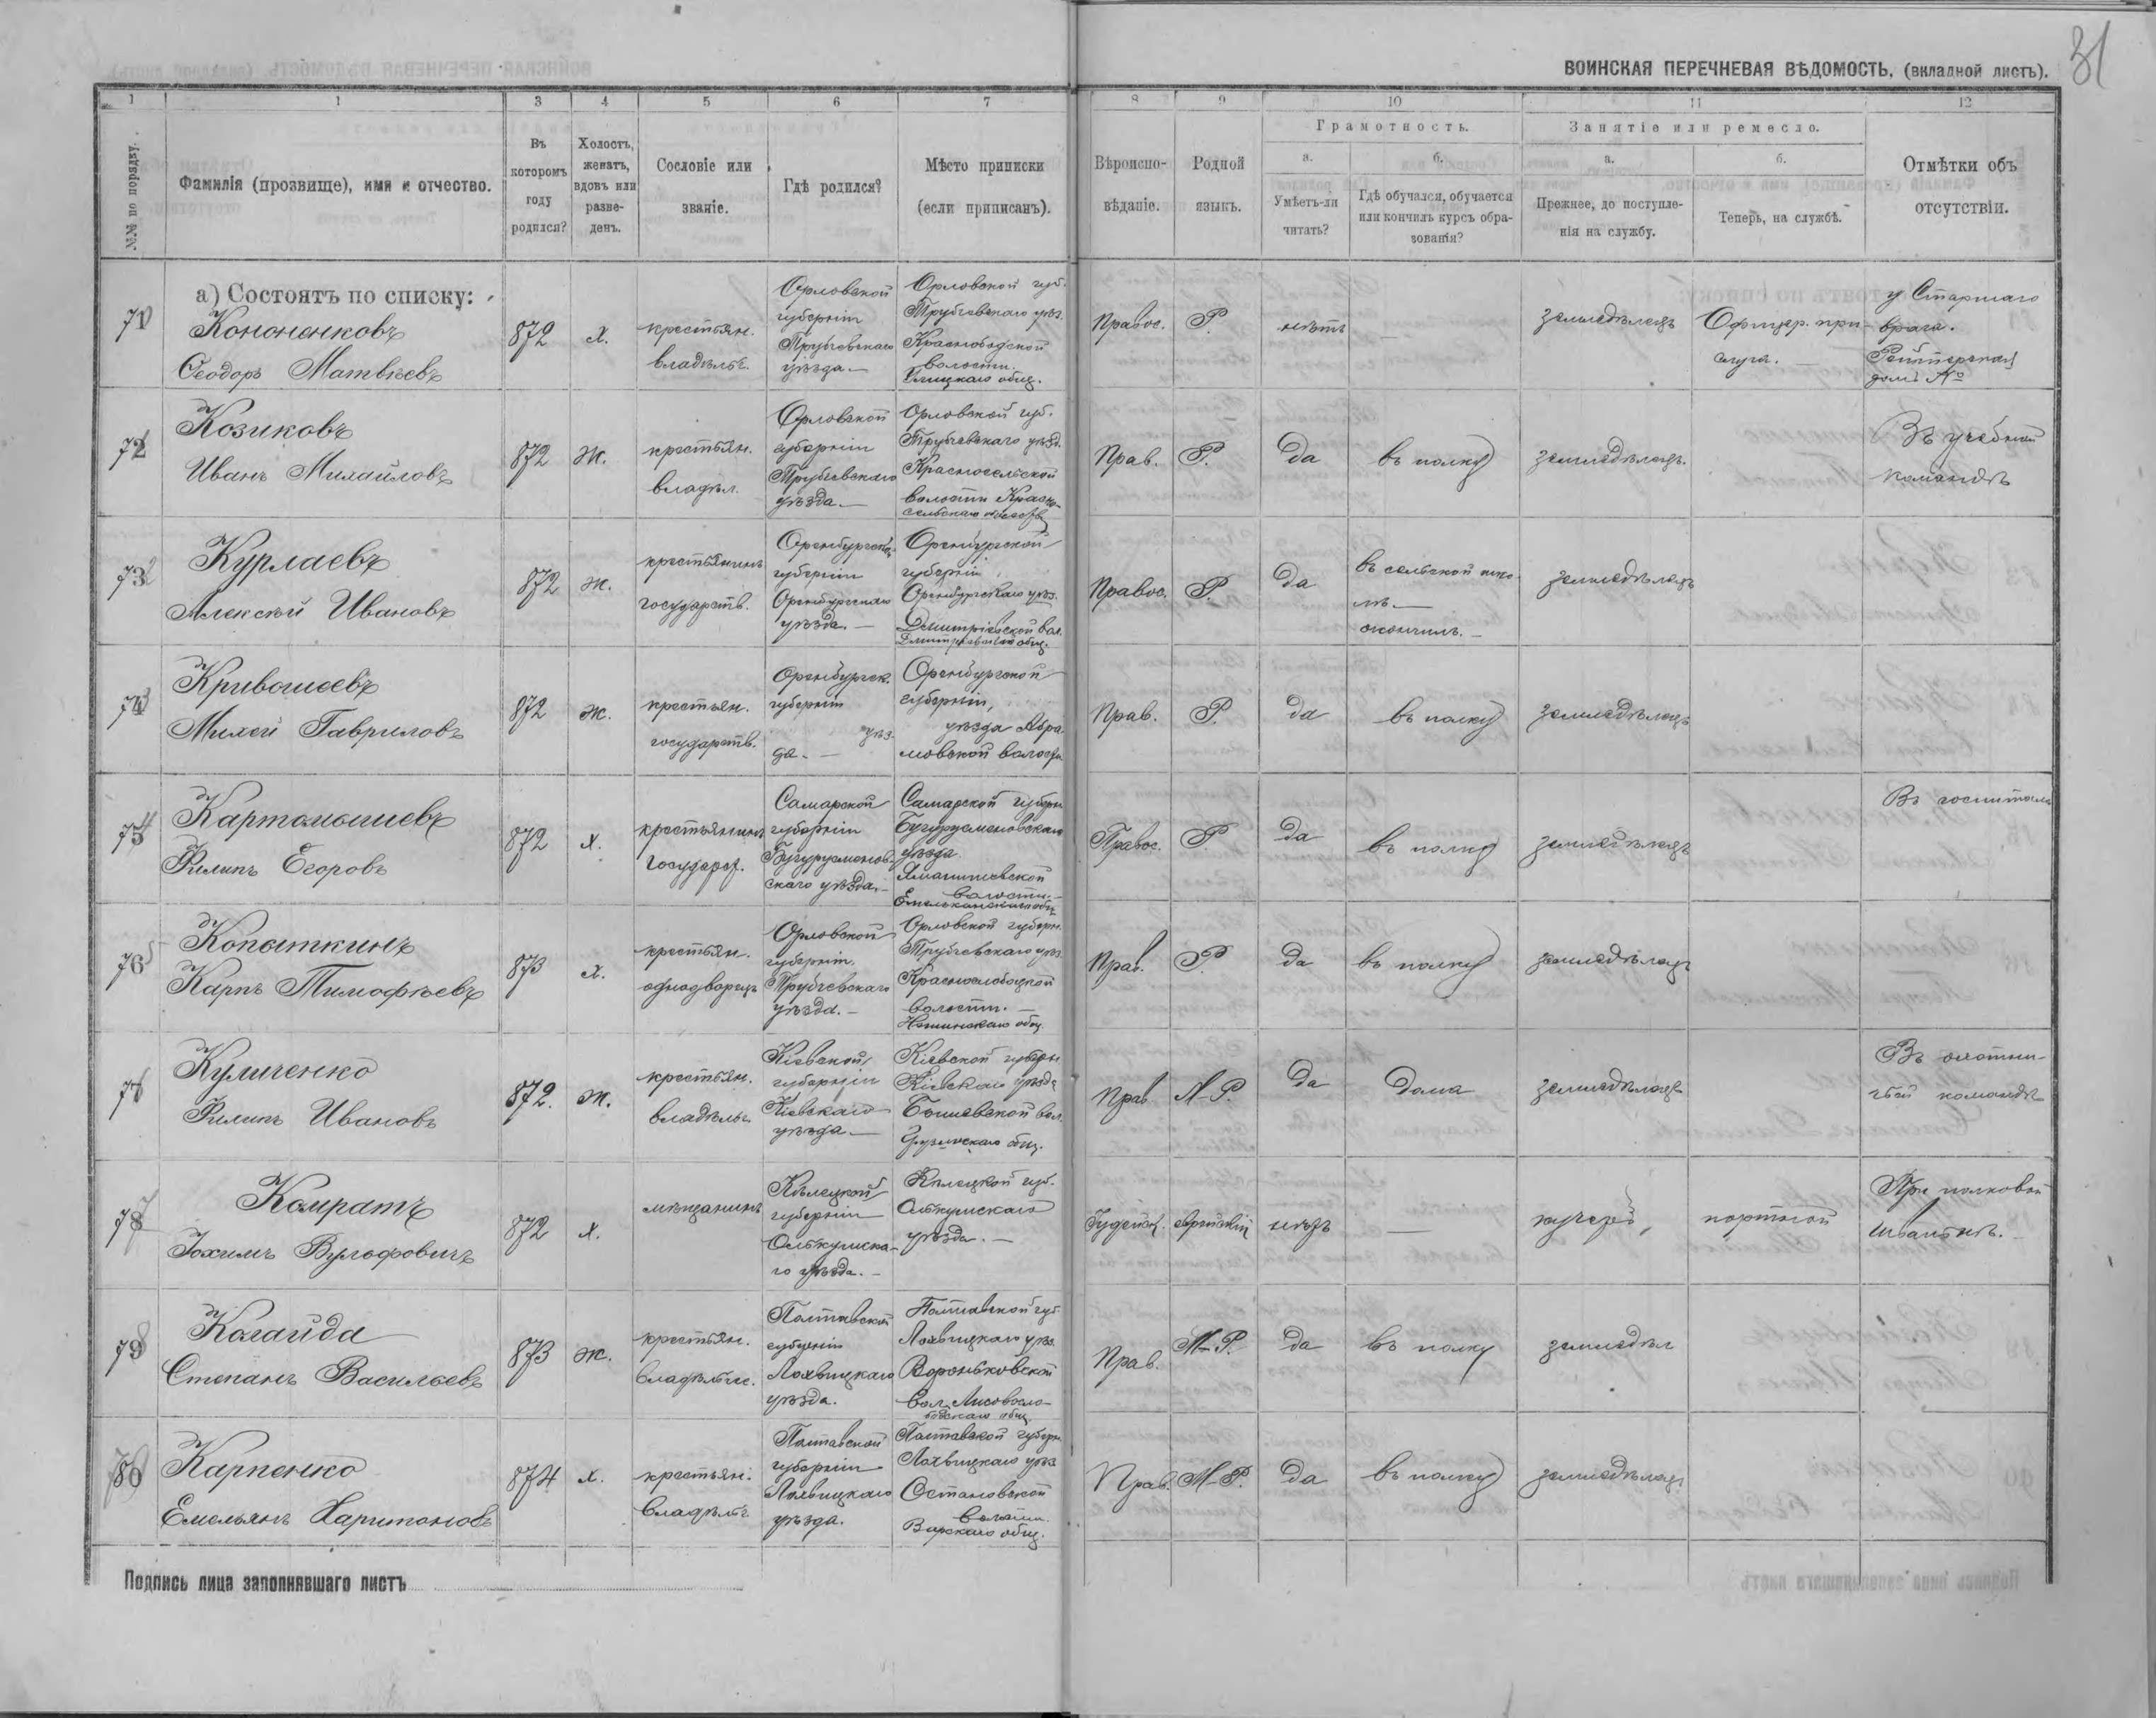 ВОИНСКАЯ ПЕРЕЧНЕВАЯ ВѢДОМОСТЬ, (вкладной листъ).
31
1
1
3
4
5
6
7
8
9
10
11
12
№№ по порядку.
Фамилія (прозвище), имя и отчество.
Въ
которомъ
году
родился?
Холостъ,
женатъ,
вдовъ или
разве-
денъ.
Сословіе или
званіе.
Гдѣ родился?
Мѣсто приписки
(если приписанъ).
Вѣроиспо-
вѣданіе.
Родной
языкъ.
Грамотность.
а.
Умѣетъ-ли
читать?
б.
Гдѣ обучался, обучается
или кончилъ курсъ обра-
зованія?
Занятіе или ремесло.
а.
Прежнее, до поступле-
нія на службу.
б.
Теперь, на службѣ.
Отмѣтки объ
отсутствіи.
а) Состоятъ по списку:
71
Кононенковъ
Ѳеодоръ Матвѣевъ
872
х.
крестьян.
владѣльч.
Орловской
губерніи
Трубчевскаго
уѣзда.
Орловской губ.
Трубчевскаго уѣз.
волости.
общ.
Правос.
Р.
нѣтъ
—
земледѣлецъ
Офицер. при-
слуга.
у Старшаго
врача.
домъ №
72
Козиковъ
Иванъ Михайловъ
872
ж.
крестьян.
владѣл.
Орловской
губерніи
Трубчевскаго
уѣзда.
Орловской губ.
Трубчевскаго уѣзд.
Красносельской
волости Красно-
сельскаго
Прав.
Р.
да
въ полку
земледѣлецъ.
Въ учебной
командѣ
73
Курлаевъ
Алексѣй Ивановъ
872
ж.
крестьянинъ
государств.
Оренбургской
губерніи
Оренбургскаго
уѣзда.
Оренбургской
губерніи
Оренбургскаго уѣз.
Дмитріевской вол.
общ.
Правос.
Р.
да
въ сельской шко-
лѣ
окончилъ.
земледѣлецъ
74
Кривошеевъ
Михей Гавриловъ
872
ж.
крестьян.
государств.
Оренбургск.
губерніи
уѣз-
да.
Оренбургской
губерніи,
уѣзда Абра-
мовской волости
Прав.
Р.
да
въ полку
земледѣлецъ
75
Картамышевъ
Филипъ Егоровъ
872
х.
крестьянинъ
государст.
Самарской
губерніи
Бугурусланов-
скаго уѣзда.
Самарской губерн.
Бугурусмановскаго
уѣзда
волости.
Правос.
Р.
да
въ полку
земледѣлецъ
Въ госпиталѣ
76
Копыткинъ
Карпъ Тимофѣевъ
873
х.
крестьян.
однодворецъ
Орловской
губерніи.
Трубчевскаго
уѣзда.
Орловской губерн.
Трубчевскаго уѣз.
Краснослободской
волости.
общ.
Прав.
Р.
да
въ полку
земледѣлецъ
77
Куличенко
Филипъ Ивановъ
872.
ж.
крестьян.
владѣльч.
Кіевской
губерніи
Кіевскаго
уѣзда
Кіевской губерн
Кіевскаго уѣзда
Бышевской вол.
общ.
Прав
М-Р.
да
дома
земледѣлецъ
Въ охотни-
чьей командѣ
78
Компратъ
Іохимъ Вульфовичъ
872
х.
мѣщанинъ
Кѣлецкой
губерніи
Олькушска-
го уѣзда.
Кѣлецкой губ.
Олькушскаго
уѣзда.
Іудейск.
еврейскій
нѣтъ
—
кучеръ,
портной
При полковой
швальнѣ.
79
Когайда
Степанъ Васильевъ
873
ж.
крестьян.
владѣльч.
Полтавской
губерніи
Лохвицкаго
уѣзда.
Полтавской губ.
Лохвицкаго уѣз.
Вороньковской
вол. Лисовосло-
бодскаго общ.
Прав.
М-Р.
да
въ полку
земледѣл
80
Карпенко
Емельянъ Харитоновъ
874
х.
крестьян.
владѣльч.
Полтавской
губерніи
Лохвицкаго
уѣзда.
Полтавской губерн.
Лохвицкаго уѣз
волости.
общ.
Прав.
М-Р.
да
въ полку
земледѣлецъ
Подпись лица заполнявшаго листъ